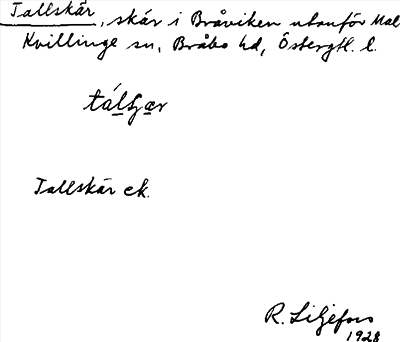 Tallskär, skär i Bråviken utanför Mal
Kvillinge sn, Bråbo hd, Östergtl. l.
Tallskär ek.
R. Liljefors
1928